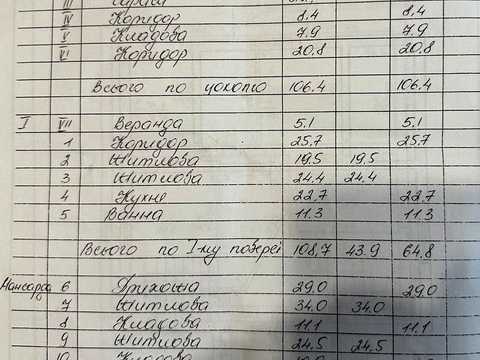 III
IV Коридор 8,4 8,4
V Кладова 7,9 7,9
VI Коридор 20,8 20,8
Всього по цоколю 106.4 106.4
I VII Веранда 5.1 5.1
1 Коридор 25,7 25,7
2 Житлова 19,5 19,5
3 Житлова 24.4 24.4
4 Кухня 22,7 22,7
5 Ванна 11.3 11.3
Всього по I-му поверсі 108,7 43.9 64,8
Мансарда 6 29,0 29,0
7 Житлова 34,0 34,0
8 Кладова 11.1 11.1
9 Житлова 24.5 24.5
10 Кладова